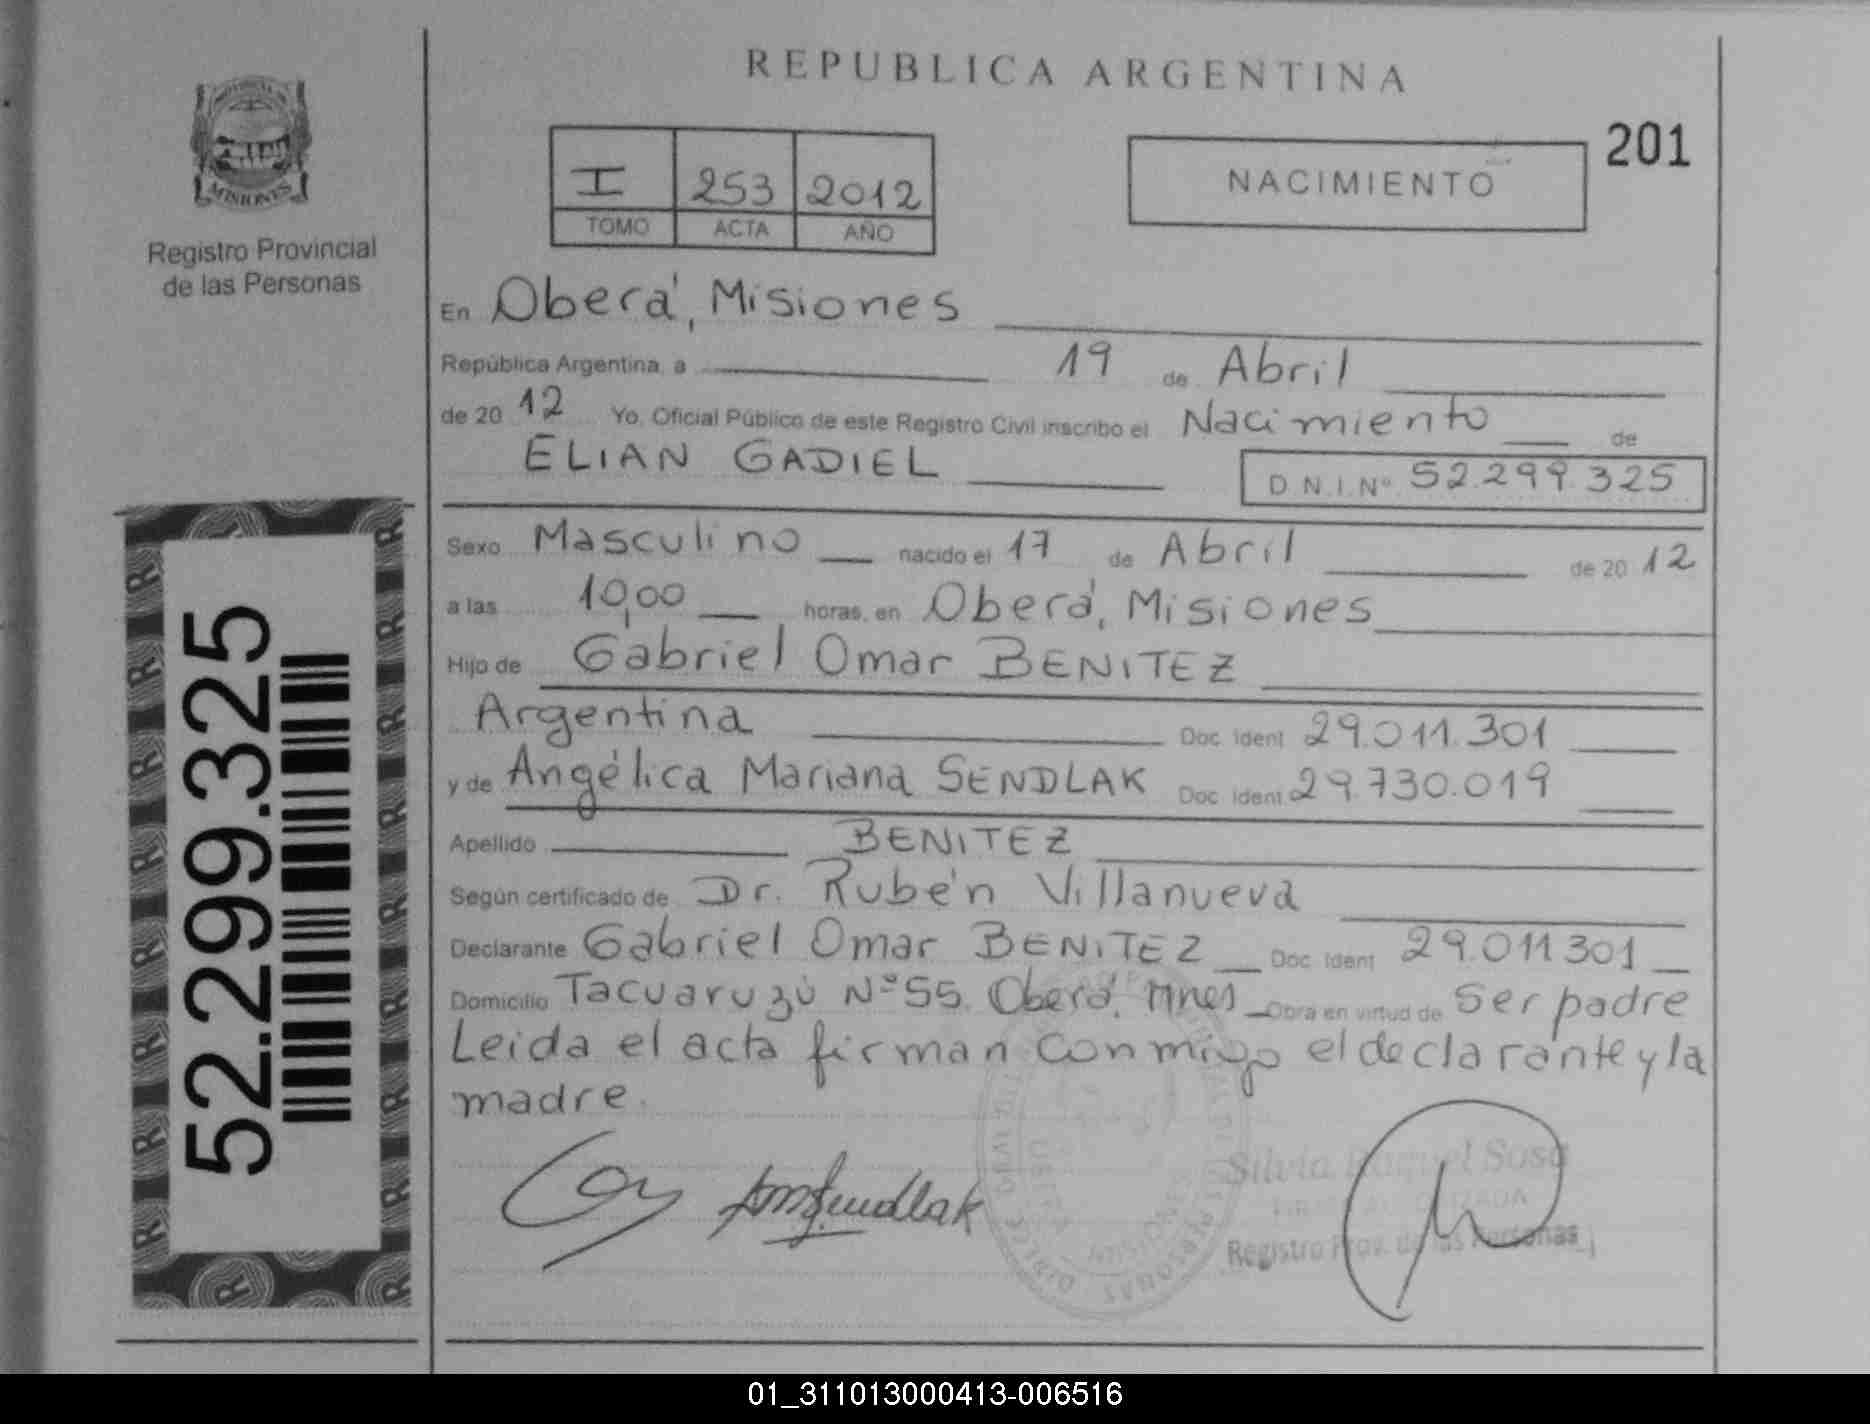 REPUBLICA ARGENTINA
201
MISIONES
Registro Provincial
de las Personas
I 253 2012
TOMO ACTA AÑO
NACIMIENTO
En Oberá, Misiones
República Argentina, a 19 de Abril
de 20 12 Yo, Oficial Público de este Registro Civil inscribo el Nacimiento de
ELIAN GADIEL D.N.I.Nº 52.299.325
Sexo Masculino nacido el 17 de Abril de 20 12
a las 10,00 horas, en Oberá, Misiones
Hijo de Gabriel Omar BENITEZ
Argentina Doc Ident 29.011.301
y de Angélica Mariana SENDLAK Doc Ident 29.730.019
Apellido BENITEZ
Según certificado de Dr. Rubén Villanueva
Declarante Gabriel Omar BENITEZ Doc Ident 29.011 301
Domicilio Tacuaruzú Nº 55. Oberá, Mnes Obra en virtud de Ser padre
Leida el acta firman conmigo el declarante y la
madre.
52.299.325
Silvia Raquel Sosa
Registro Prov. de las Personas
01_311013000413-006516